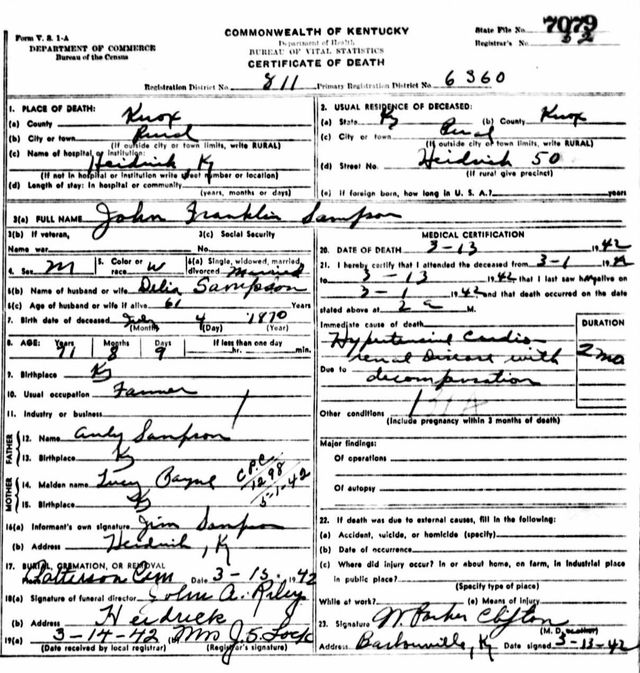 Form V. S. 1-A
DEPARTMENT OF COMMERCE
Bureau of the Census
COMMONWEALTH OF KENTUCKY
Department of Health
BUREAU OF VITAL STATISTICS
CERTIFICATE OF DEATH
State File No. 7079
Registrar's No. 52
Registration District No. 811 Primary Registration District No. 6360
1. PLACE OF DEATH:
(a) County Knox
(b) City or town Rural
(If outside city or town limits, write RURAL)
(c) Name of hospital or institution:
Heidrick, Ky
(If not in hospital or institution write street number or location)
(d) Length of stay: In hospital or community
(years, months or days)
2. USUAL RESIDENCE OF DECEASED:
(a) State Ky (b) County Knox
(c) City or town Rural
(If outside city or town limits, write RURAL)
(d) Street No. Heidrick 50
(If rural give precinct)
(e) If foreign born, how long in U. S. A.? years
3(a) FULL NAME John Franklin Sampson
3(b) If veteran,
Name war
3(c) Social Security
No.
4. Sex M
5. Color or race W
6(a) Single, widowed, married, divorced Married
6(b) Name of husband or wife Delia Sampson
6(c) Age of husband or wife if alive 61 Years
7. Birth date of deceased July 4 1870
(Month) (Day) (Year)
8. AGE: Years Months Days If less than one day
71 8 9 hr. min.
9. Birthplace Ky
10. Usual occupation Farmer
11. Industry or business
FATHER
12. Name Andy Sampson
13. Birthplace Ky
MOTHER
14. Maiden name Lucy Payne
15. Birthplace Ky
C.P.C.
1298
5-1-42
16(a) Informant's own signature Jim Sampson
(b) Address Heidrick, Ky
17. BURIAL, CREMATION, OR REMOVAL
Patterson Cem Date 3-15-1942
18(a) Signature of funeral director John A. Riley
(b) Address Heidrick
19(a) 3-14-42 (b) Mrs J. S. Lock
(Date received by local registrar) (Registrar's signature)
MEDICAL CERTIFICATION
20. DATE OF DEATH 3-13 1942
21. I hereby certify that I attended the deceased from 3-1 19
to 3-13 1942 that I last saw him alive on
3-1 1942 and that death occurred on the date
stated above at 2 a M.
Immediate cause of death
DURATION
Hypertensive Cardio
renal Disease with
2 mo
Due to decompensation
Other conditions
(Include pregnancy within 3 months of death)
Major findings:
Of operations
Of autopsy
22. If death was due to external causes, fill in the following:
(a) Accident, suicide, or homicide (specify)
(b) Date of occurrence
(c) Where did injury occur? In or about home, on farm, in industrial place
in public place?
(Specify type of place)
While at work? (e) Means of injury
23. Signature W. Parker Clifton
(M. D. or other)
Address Barbourville, Ky Date signed 3-13-42